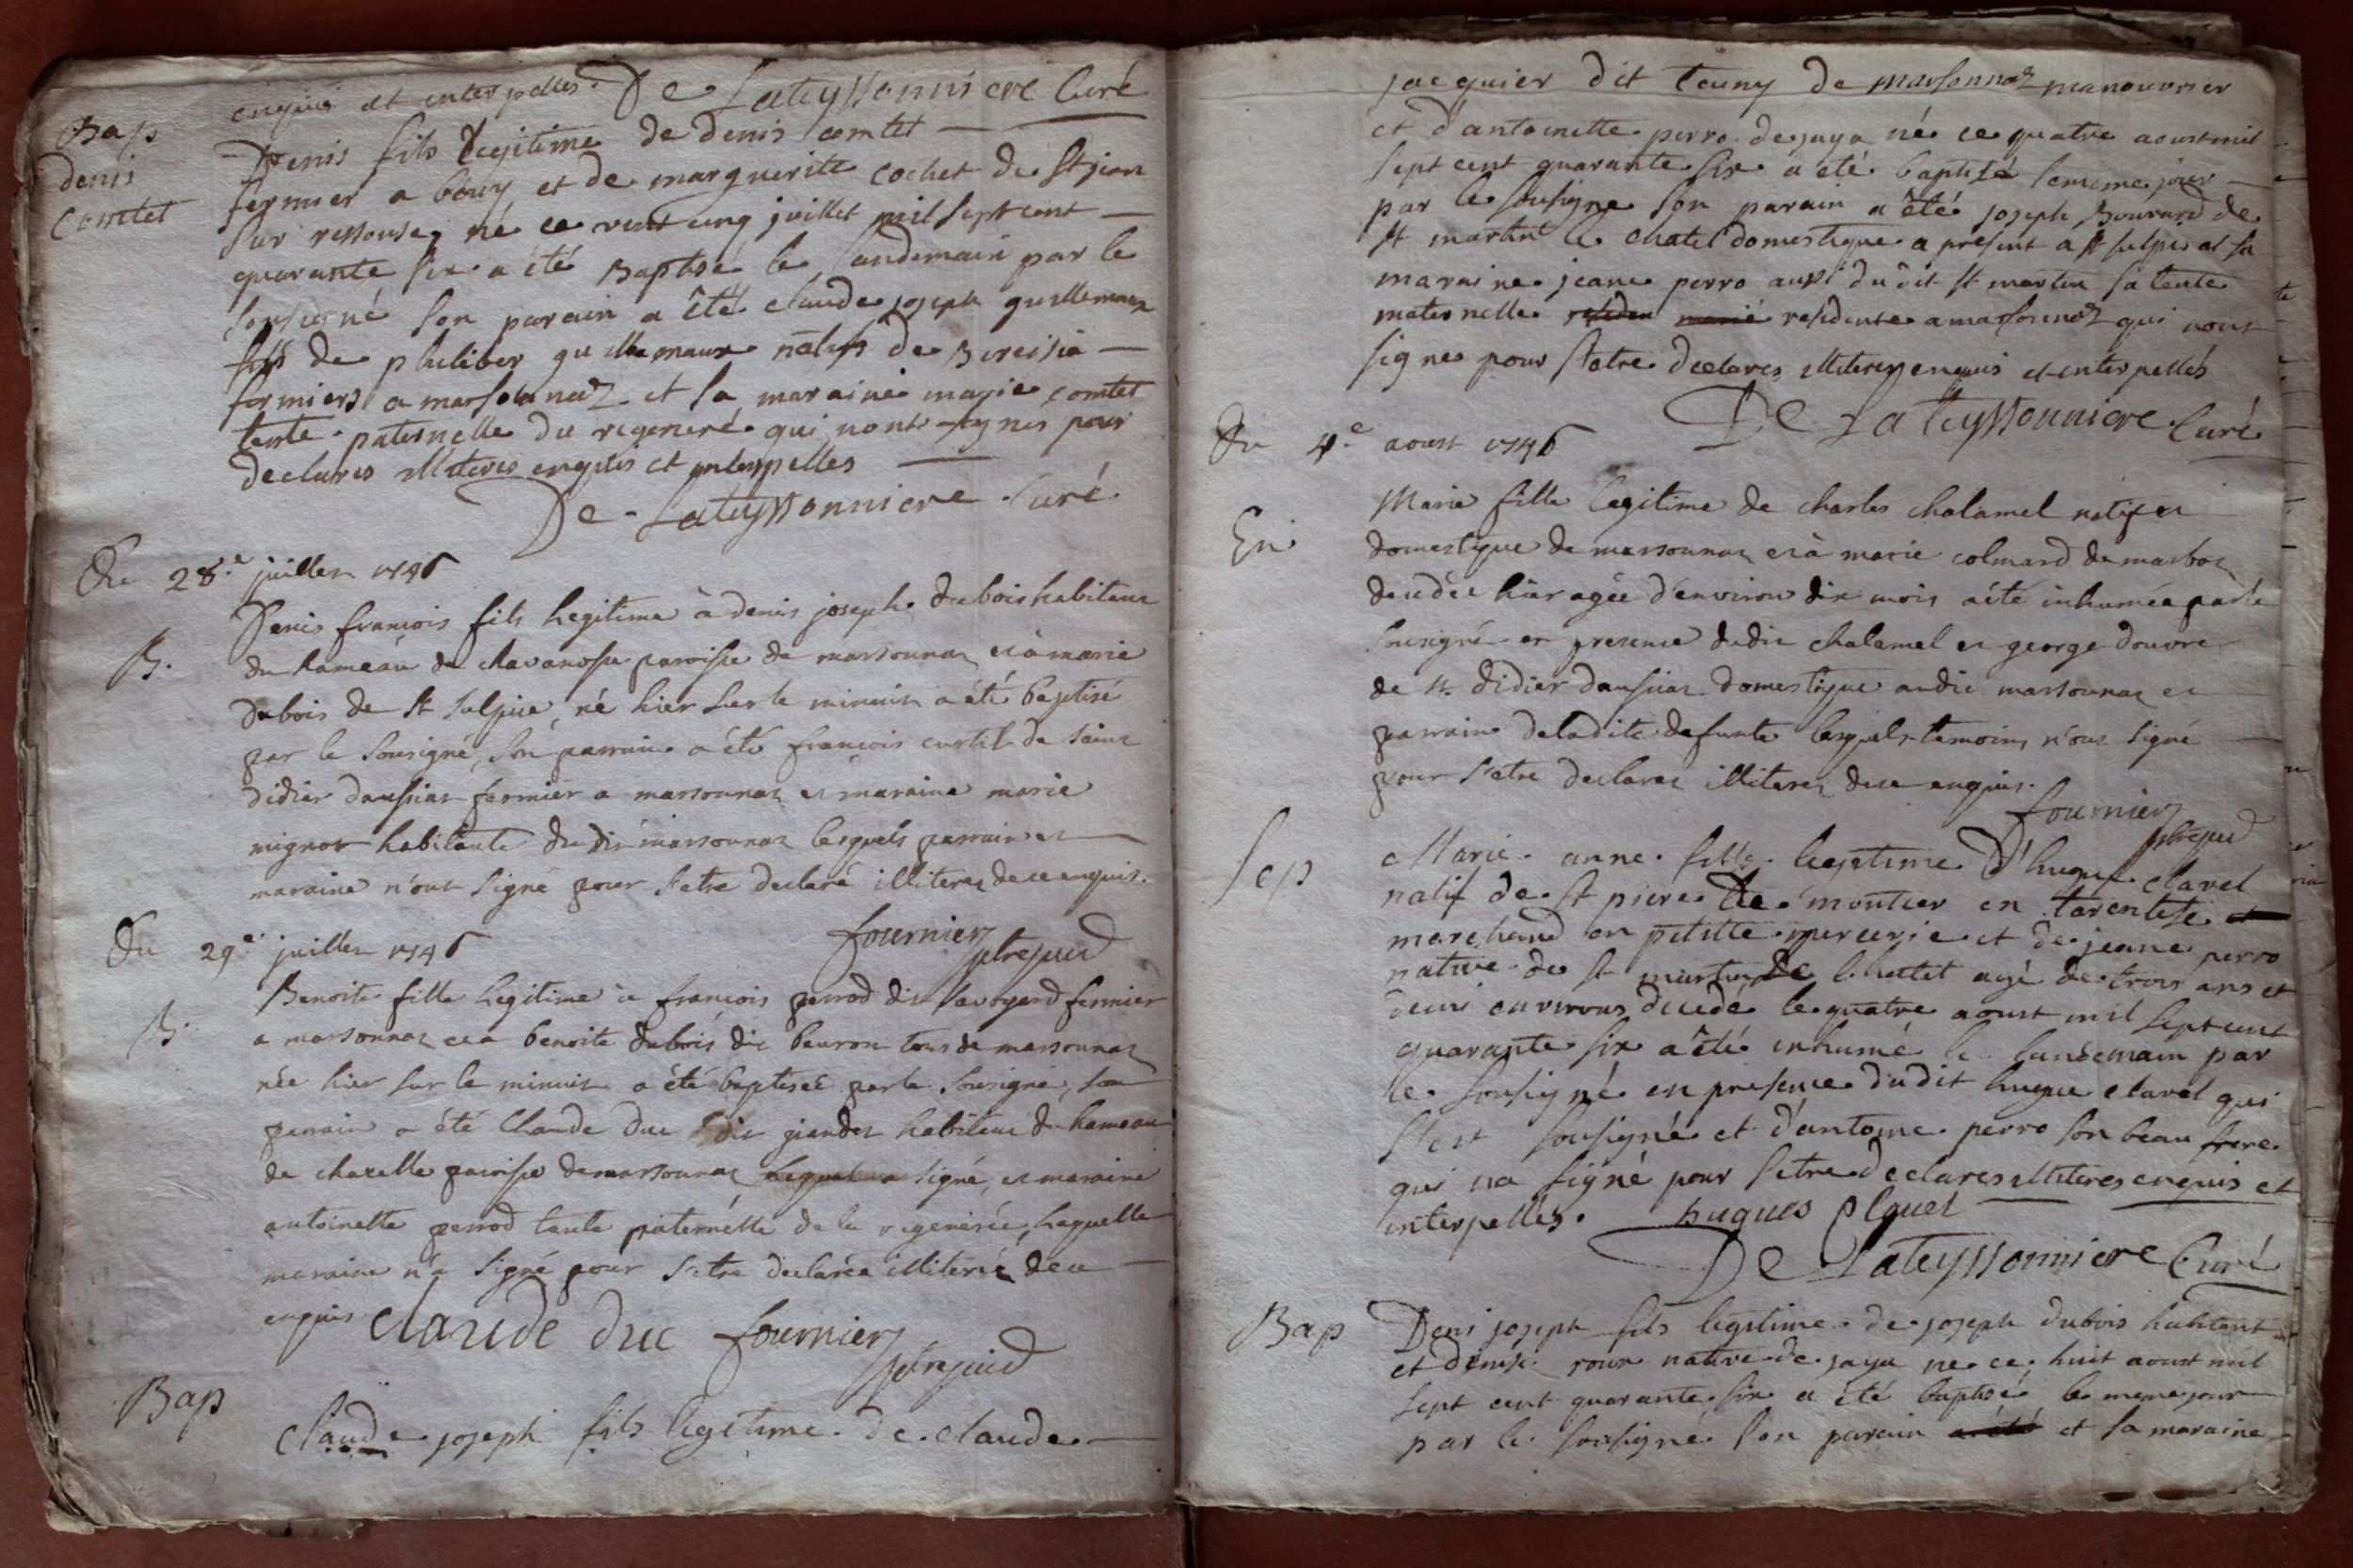 enquis et interpelles. De Lateyssonniere Curé
Bap
denis
comtet
Denis fils legitime de denis comtet
fermier a bouy et de marguerite cochet de St jean
sur ressouse, né ce vint cinq juillet mil sept cent
quarante six a été Baptisé le landemain par le
sousigné son parain a été claude joseph guillemaux
fils de philiber guillemaux natifs de
fermiers a marsonnaz et sa maraine marie comtet
tente paternelle du regeneré qui nont signes pour
declares illiteres enquis et interpelles
De Lateyssonniere Curé
Du 28.e juillet 1746
B.
Denis françois fils legitime à denis joseph dubois habitant
du hameau de chavanosse paroisse de marsonnaz et à marie
dubois de St Sulpice, né hier sur le minuit a été baptisé
par le sousigné, son parrain a été françois curtil de saint
didier daussiat fermier a marsonnaz et maraine marie
mignot habitante du dit marsonnaz lesquels parrain et
maraine n'ont signé pour s'etre declaré illiteres de ce enquis.
fournier
Du 29.e juillet 1746
B.
Benoite fille legitime à françois perrod dit savoyard fermier
a marsonnaz et a benoite dubois dit beuron tous de marsonnaz
née hier sur le minuit a été baptisée par le sousigné, son
parrain a été Claude duc dit habitant du hameau
de chazelle paroisse de marsonnaz lequel a signé, et maraine
antoinette perrod tante paternelle de la regenerée, laquelle
maraine n'a signé pour s'etre declarée illiterée de ce
enquis claude duc fournier
Bap
Claude joseph fils legitime de claude
jacquier dit touny de marsonnaz manouvrier
et d'antoinette perro de jaya né ce quatre aoust mil
sept cent quarante six a été baptisé le meme jour
par le sousigné son parain a été joseph Bouvard de
St martin le chatel domestique a present a St sulpis et sa
maraine jeane perro aussi du dit St martin sa tente
maternelle residente a marsonnaz qui nont
signe pour setre declares illiteres enquis et interpellés
De Lateyssonniere Curé
Du 4.e aoust 1746
En
Marie fille legitime de charles chalamel natif et
domestique de marsonnaz et à marie colmard de marboz
decedée hier agée d'environ dix mois a été inhumée par le
sousigné en presence dudit chalamel et george douvre
de St. didier daussiat domestique audit marsonnaz et
parrain de ladite defunte lesquels temoins n'ont signé
pour s'etre declarez illiterez de ce enquis.
fournier
Sep
Marie anne fille legitime d'hugue clavel
natif de st piere de moutier en tarentese et
marchand en petitte mercerie et de jeane perro
native de st martin le chatel agé de trois ans et
demi environs decedé le quatre aoust mil sept cent
quarante six a été inhumé le landemain par
le sousigné en presence dudit hugue clavel qui
s'est sousigné et d'antoine perro son beau frere
qui na signé pour setre declares illiteres enquis et
interpelles. hugues Clauel
De Lateyssonniere Curé
Bap
Deni joseph fils legitime de joseph dubois habitant
et denise roux native de jaya né ce huit aoust mil
sept cent quarante six a été baptisé le meme jour
par le sousigné son parain a été et sa maraine